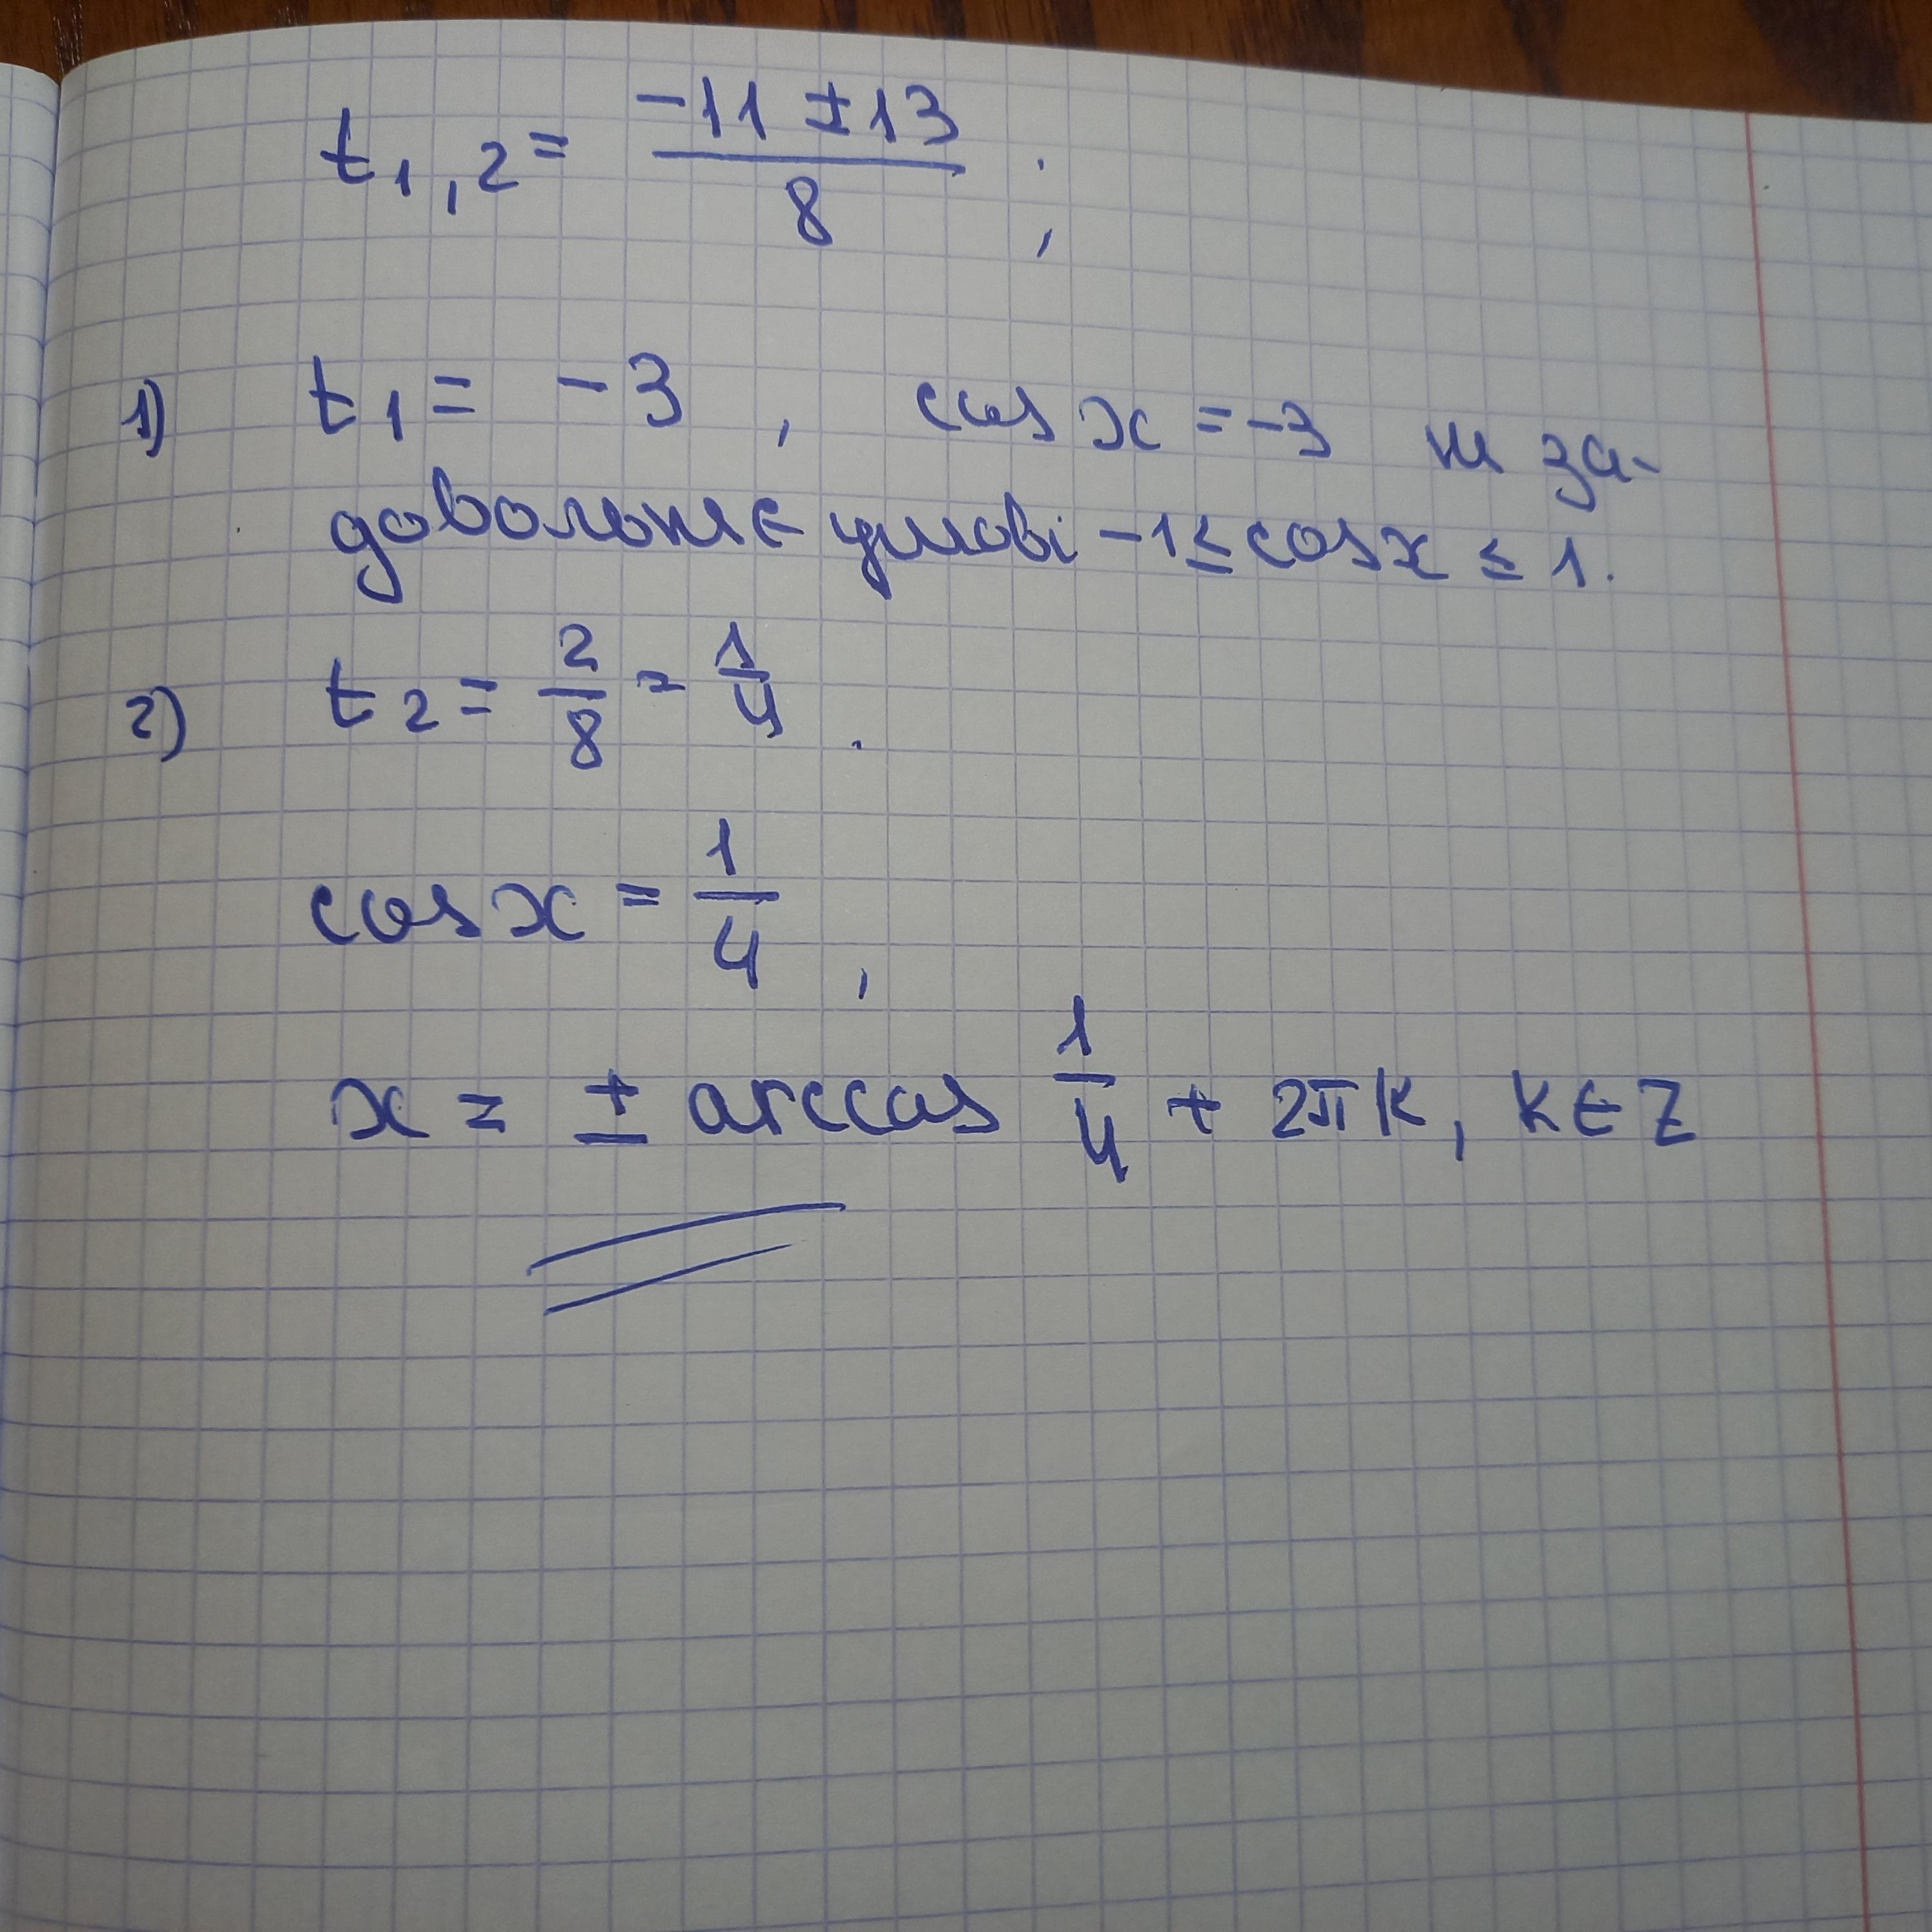 t₁,₂ = (-11 ± 13)/8 ;
1) t₁ = -3 , cos x = -3 не за-
довольняє умові -1 ≤ cos x ≤ 1.
2) t₂ = 2/8 = 1/4 .
cos x = 1/4 ,
x = ± arccos 1/4 + 2πk, k ∈ Z